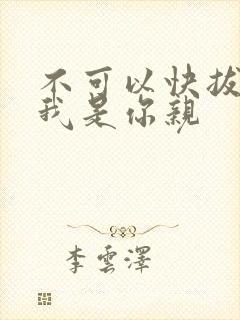 不可以快拔
我是你親
李雲澤